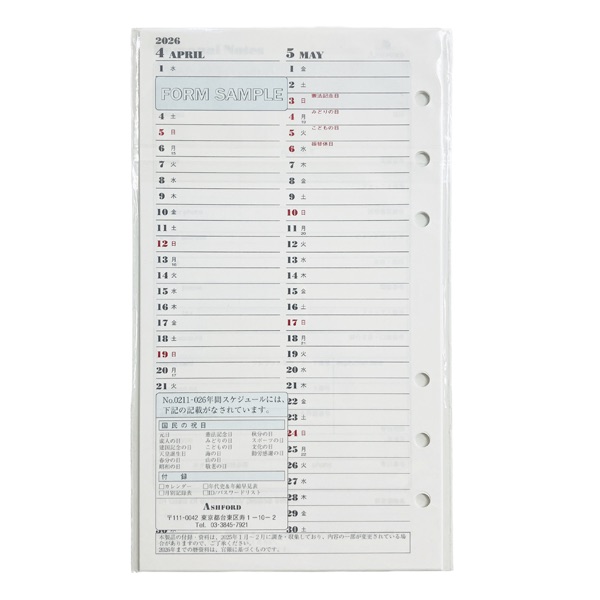 2026
4 APRIL 5 MAY
1 水 1 金
FORM SAMPLE 2 土
3 日 憲法記念日
4 土 4 月 みどりの日
5 日 5 火 こどもの日
6 月 6 水 振替休日
7 火 7 木
8 水 8 金
9 木 9 土
10 金 10 日
11 土 11 月
12 日 12 火
13 月 13 水
14 火 14 木
15 水 15 金
16 木 16 土
17 金 17 日
18 土 18 月
19 日 19 火
20 月 20 水
21 火 21 木
22 金
No.0211-026年間スケジュールには、
下記の記載がなされています。
23 土
24 日
国民の祝日
25 月
元日 憲法記念日 秋分の日
成人の日 みどりの日 スポーツの日
建国記念の日 こどもの日 文化の日
26 火
天皇誕生日 海の日 勤労感謝の日
春分の日 山の日
昭和の日 敬老の日
27 水
付録
28 木
□カレンダー □年代史&年齢早見表
□月別記録表 □ID/パスワードリスト
29 金
ASHFORD
〒111-0042 東京都台東区寿1-10-2
TEL 03-3845-7921
30 30
本製品の付録・資料は、2025年1月~2月に調査・収集しており、内容の一部が変更されている場
合がありますので、ご了承ください。
2026年までの暦資料は、官報に基づくものです。